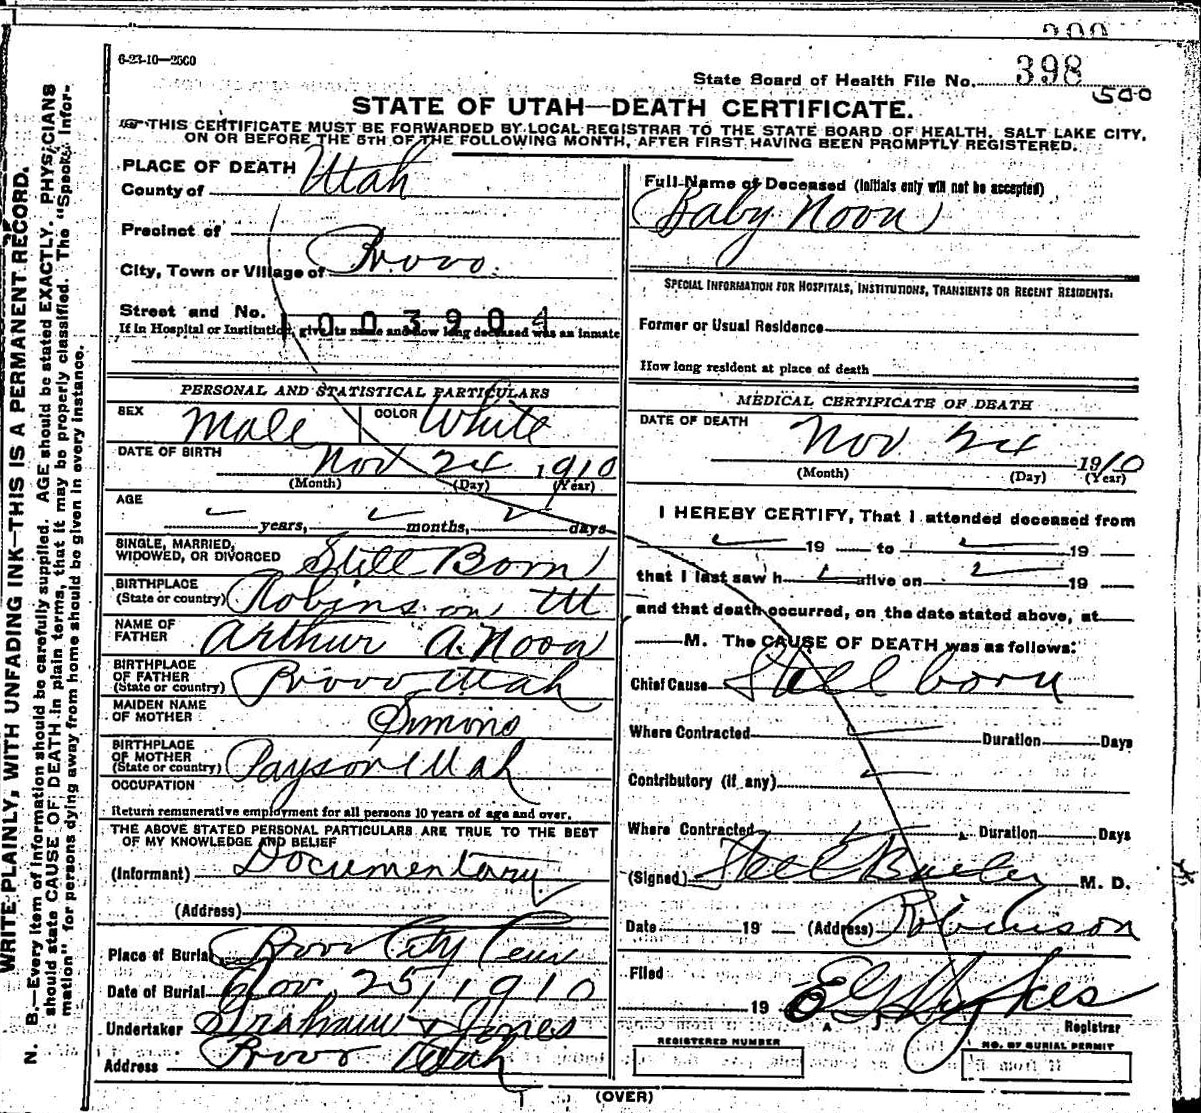 398
500
6-23-10-2500
State Board of Health File No. 398
STATE OF UTAH—DEATH CERTIFICATE.
THIS CERTIFICATE MUST BE FORWARDED BY LOCAL REGISTRAR TO THE STATE BOARD OF HEALTH, SALT LAKE CITY,
ON OR BEFORE THE 5TH OF THE FOLLOWING MONTH, AFTER FIRST HAVING BEEN PROMPTLY REGISTERED.
WRITE PLAINLY, WITH UNFADING INK—THIS IS A PERMANENT RECORD.
N. B.—Every item of information should be carefully supplied. AGE should be stated EXACTLY. PHYSICIANS
should state CAUSE OF DEATH in plain terms, that it may be properly classified. The "Special Infor-
mation" for persons dying away from home should be given in every instance.
PLACE OF DEATH
County of Utah
Precinct of
City, Town or Village of Provo.
Street and No.
1003904
If in Hospital or Institution, give its name and how long deceased was an inmate
PERSONAL AND STATISTICAL PARTICULARS
SEX Male COLOR White
DATE OF BIRTH Nov 24 1910
(Month) (Day) (Year)
AGE
years, months, days
SINGLE, MARRIED,
WIDOWED, OR DIVORCED Still Born
BIRTHPLACE
(State or country) Robinson Ut
NAME OF
FATHER Arthur A. Noon
BIRTHPLACE
OF FATHER
(State or country) Provo Utah
MAIDEN NAME
OF MOTHER Simons
BIRTHPLACE
OF MOTHER
(State or country) Payson Utah
OCCUPATION
Return remunerative employment for all persons 10 years of age and over.
THE ABOVE STATED PERSONAL PARTICULARS ARE TRUE TO THE BEST
OF MY KNOWLEDGE AND BELIEF
(Informant) Documentary
(Address)
Place of Burial Provo City Cem
Date of Burial Nov 25, 1910
Undertaker Graham & Jones
Address Provo Utah
Full Name of Deceased (Initials only will not be accepted)
Baby Noon
SPECIAL INFORMATION FOR HOSPITALS, INSTITUTIONS, TRANSIENTS OR RECENT RESIDENTS:
Former or Usual Residence
How long resident at place of death
MEDICAL CERTIFICATE OF DEATH
DATE OF DEATH Nov 24 1910
(Month) (Day) (Year)
I HEREBY CERTIFY, That I attended deceased from
19 to 19
that I last saw h alive on 19
and that death occurred, on the date stated above, at
M. The CAUSE OF DEATH was as follows:
Chief Cause Still born
Where Contracted Duration Days
Contributory (if any)
Where Contracted Duration Days
(Signed) M. D.
Date 19 (Address) Robinson
Filed
19
Registrar
REGISTERED NUMBER
NO. OF BURIAL PERMIT
(OVER)